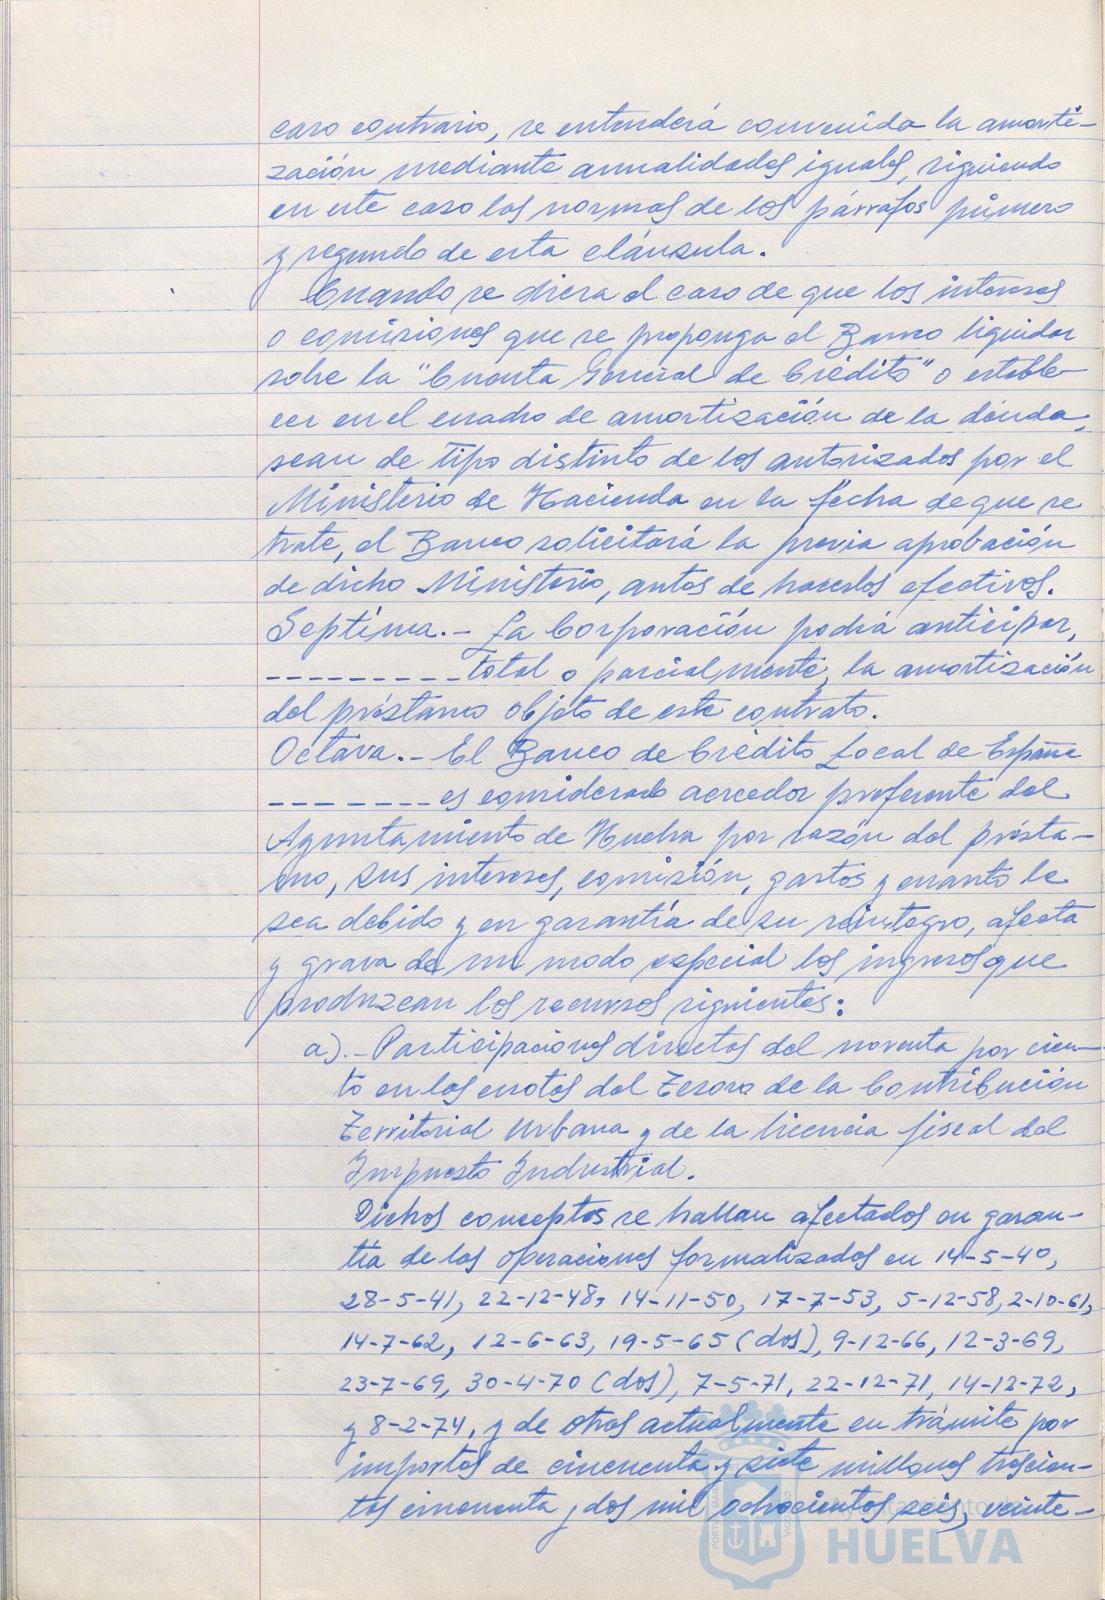 caso contrario, se entenderá convenida la amorti-
zación mediante anualidades iguales, siguiendo
en este caso las normas de los párrafos primero
y segundo de esta cláusula.
Cuando se diera el caso de que los intereses
o comisiones que se proponga el Banco liquidar
sobre la "Cuenta General de Crédito" o estable-
cer en el cuadro de amortización de la deuda,
sean de tipo distinto de los autorizados por el
Ministerio de Hacienda en la fecha de que se
trate, el Banco solicitará la previa aprobación
de dicho Ministerio, antes de hacerlos efectivos.
Septima.- La Corporación podrá anticipar,
--------- total o parcialmente, la amortización
del préstamo objeto de este contrato.
Octava.- El Banco de Crédito Local de España
-------- es considerado acreedor preferente del
Ayuntamiento de Huelva por razón del présta-
mo, sus intereses, comisión, gastos y cuanto le
sea debido y en garantía de su reintegro, afecta
y grava de un modo especial los ingresos que
produzcan los recursos siguientes:
a).- Participaciones directas del noventa por cien-
to en las cuotas del Tesoro de la Contribución
Territorial Urbana y de la licencia fiscal del
Impuesto Industrial.
Dichos conceptos se hallan afectados en garan-
tía de las operaciones formalizadas en 14-5-40,
28-5-41, 22-12-48, 14-11-50, 17-7-53, 5-12-58, 2-10-61,
14-7-62, 12-6-63, 19-5-65 (dos), 9-12-66, 12-3-69,
23-7-69, 30-4-70 (dos), 7-5-71, 22-12-71, 14-12-72,
y 8-2-74, y de otras actualmente en trámite por
importes de cincuenta y siete millones trescien-
tas cincuenta y dos mil ochocientas seis, veinte-
Ayuntamiento de
HUELVA